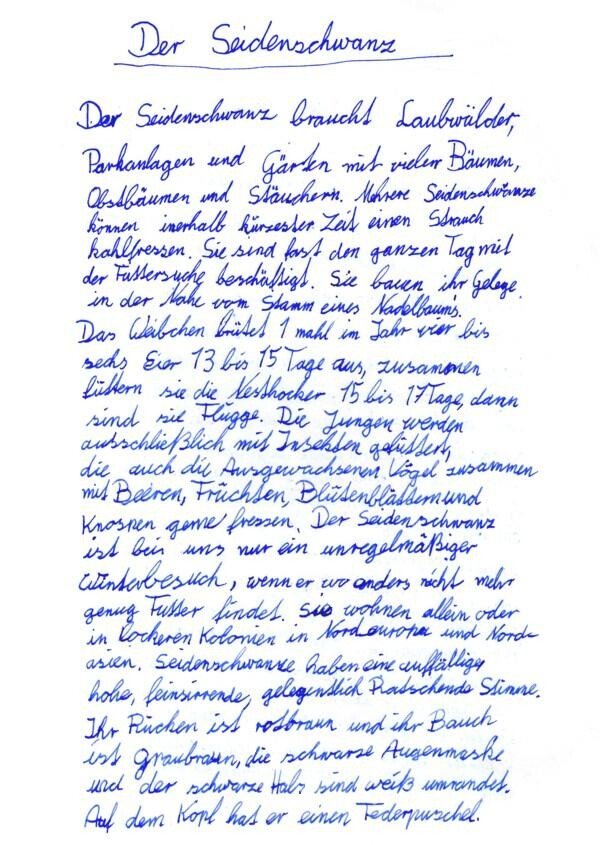 Der Seidenschwanz
Der Seidenschwanz braucht Laubwälder,
Parkanlagen und Gärten mit vielen Bäumen,
Obstbäumen und Stäuchern. Mehrere Seidenschwänze
können inerhalb kürzester Zeit einen Strauch
kahlfressen. Sie sind fast den ganzen Tag mit
der Futtersuche beschäftigt. Sie bauen ihr Gelege
in der Nähe vom Stamm eines Nadelbaums.
Das Weibchen brütet 1 mahl im Jahr vier bis
sechs Eier 13 bis 15 Tage aus, zusammen
füttern sie die Nesthocker 15 bis 17 Tage, dann
sind sie Flügge. Die Jungen werden
ausschließlich mit Insekten gefüttert,
die auch die Ausgewachsenen Vögel zusammen
mit Beeren, Früchten, Blütenblättern und
Knospen gerne fressen. Der Seidenschwanz
ist bei uns nur ein unregelmäßiger
Winterbesuch, wenn er wo anders nicht mehr
genug Futter findet. Sie wohnen allein oder
in lockeren Kolonien in Nordeuropa und Nord-
asien. Seidenschwänze haben eine auffällige
hohe, feinsirrende, gelegentlich Ratschende Stimme.
Ihr Rücken ist rotbraun und ihr Bauch
ist graubraun, die schwarze Augenmaske
und der schwarze Hals sind weiß umrandet.
Auf dem Kopf hat er einen Federpuschel.